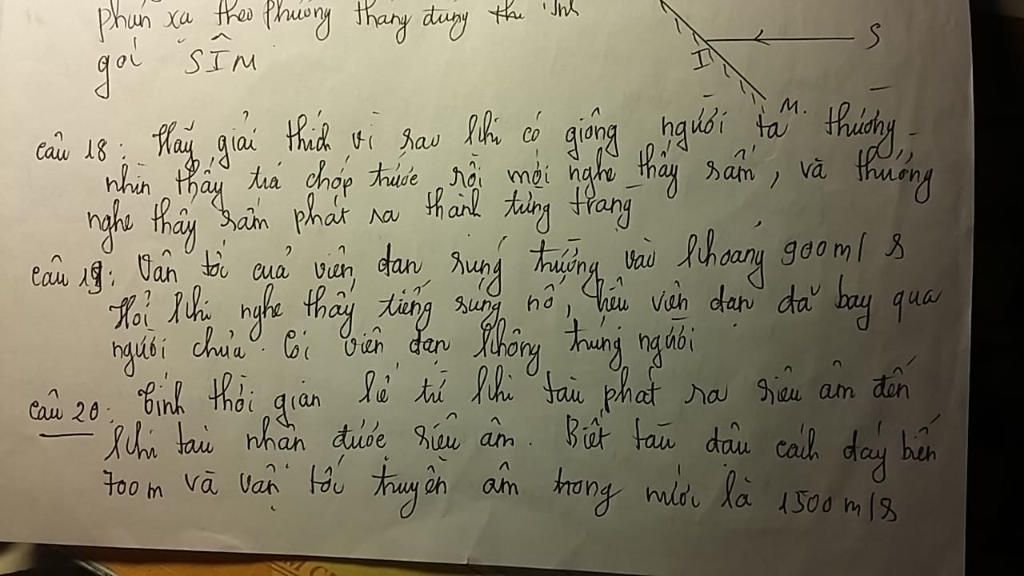 phản xạ theo phương thẳng đứng thì tính
góc SIM
S
I
M.
Câu 18: Hãy giải thích vì sao khi có giông người ta thường
nhìn thấy tia chớp trước rồi mới nghe thấy sấm, và thường
nghe thấy sấm phát ra thành từng tràng
Câu 19: Vận tốc của viên đạn súng trường vào khoảng 900m/s
Hỏi khi nghe thấy tiếng súng nổ, liệu viên đạn đã bay qua
người chưa. Coi viên đạn không trúng người
Câu 20: Tính thời gian kể từ khi tàu phát ra siêu âm đến
khi tàu nhận được siêu âm. Biết tàu đậu cách đáy biển
700m và vận tốc truyền âm trong nước là 1500m/s